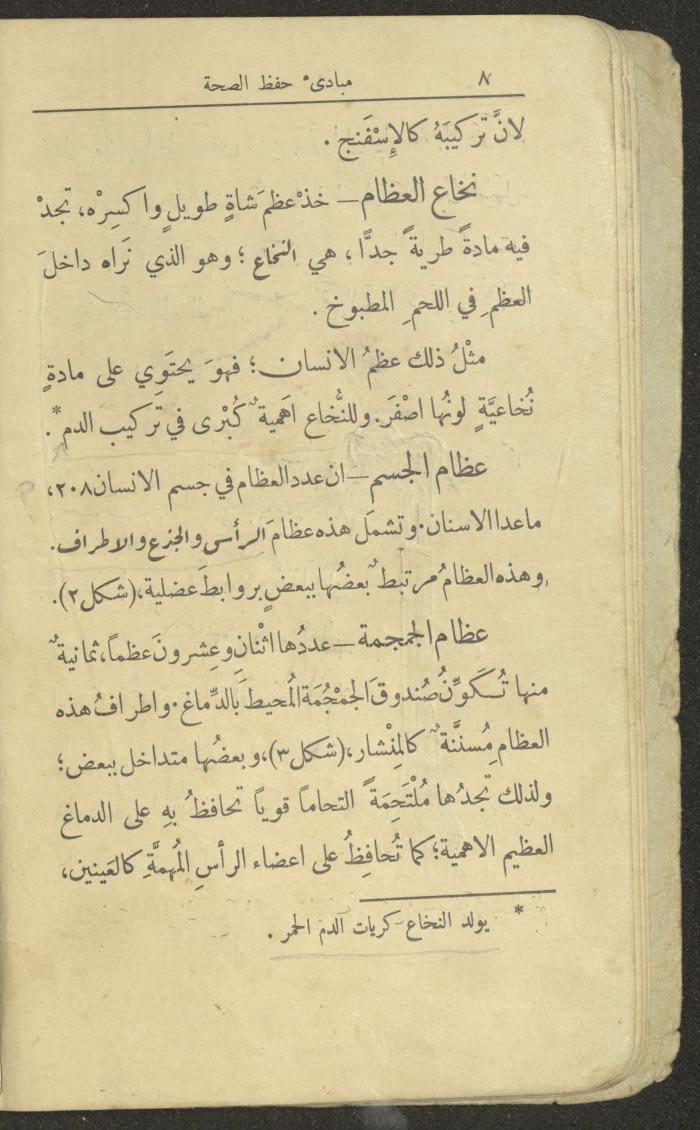 ٨
مبادئ حفظ الصحة
لانَّ تركيبَهُ كالإِسْفَنج .
نخاع العظام — خذْ عظمَ شاةٍ طويلٍ واكسِرْه، تجدْ
فيه مادةً طريةً جدًّا، هي النخاع ؛ وهو الذي نَراه داخلَ
العظمِ في اللحمِ المطبوخ .
مثْلُ ذلك عظمُ الانسان ؛ فهوَ يحتَوِي على مادةٍ
نُخاعيَّةٍ لونُها اصْفَر. وللنُّخاع اهَميةٌ كُبْرى في تَركيب الدم* .
عظام الجسم — ان عدد العظام في جسم الانسان ٢٠٨،
ماعدا الاسنان. وتشمَل هذه عظامَ الرأس والجذع والاطراف.
وهذه العظامُ مرتبطٌ بعضُها ببعضٍ بروابطَ عضلية، (شكل ٢).
عظام الجمجمة — عددُها اثْنانِ وعِشرونَ عظماً، ثمانيةٌ
منها تُكَوِّنُ صُندوقَ الجمْجُمَة المُحيطَ بالدِّماغ. واطرافُ هذه
العظامِ مُسنَّنةٌ كالمِنْشار، (شكل ٣)، وبعضُها متداخل ببعض ؛
ولذلك تجدُها مُلْتَحِمَةً التحاماً قوياً تحافظُ بهِ على الدماغ
العظيم الاهمية؛ كما تُحافِظُ على اعضاء الرأسِ المُهِمَّةِ كالعَينين،
* يولد النخاع كريات الدم الحمر .